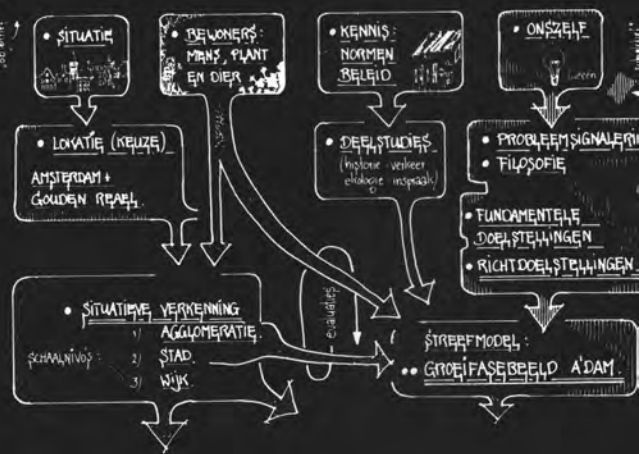 • SITUATIE
• BEWONERS:
MENS, PLANT
EN DIER
• KENNIS:
NORMEN
BELEID
• ONSZELF
• LOKATIE (KEUZE)
AMSTERDAM +
GOUDEN REAEL.
• DEELSTUDIES
(historie - verkeer
ekologie - inspraak)
• PROBLEEMSIGNALERIN
• FILOSOFIE
• FUNDAMENTELE
DOELSTELLINGEN
• RICHTDOELSTELLINGEN
• SITUATIEVE VERKENNING
SCHAALNIVO'S:
1) AGGLOMERATIE
2) STAD
3) WIJK
evaluaties
STREEFMODEL:
•• GROEIFASEBEELD A'DAM.